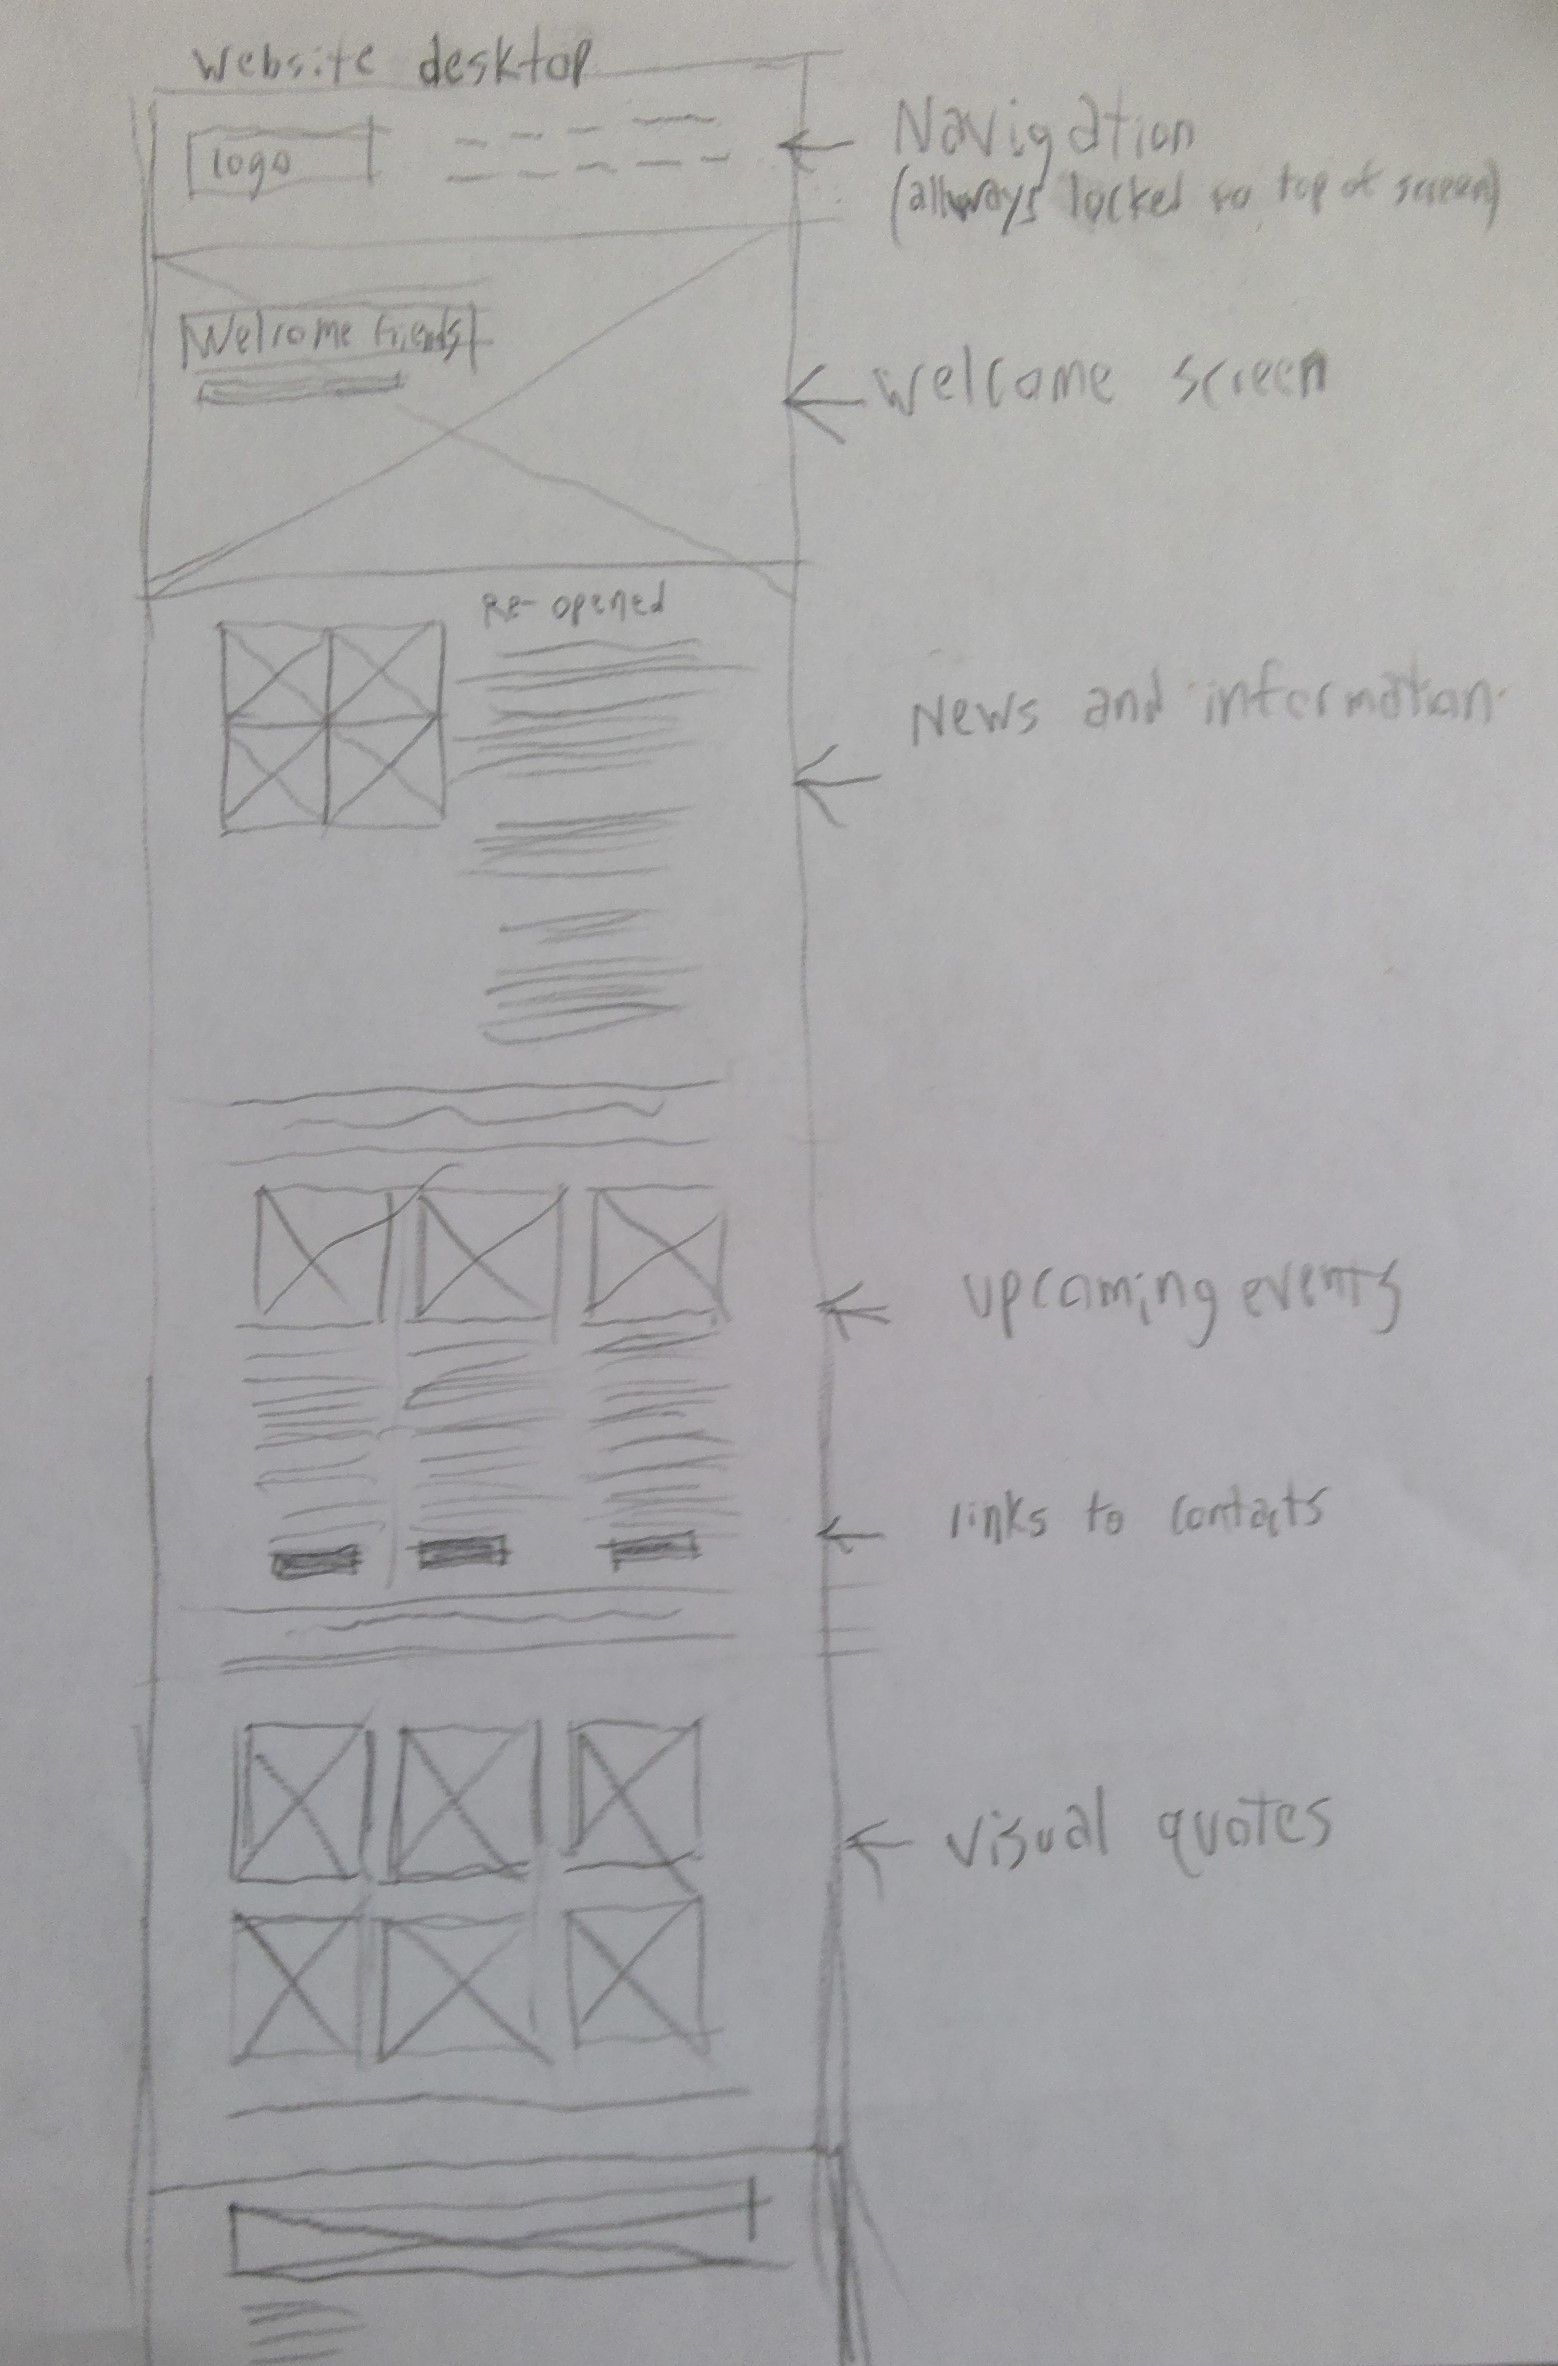 Website desktop
logo
Navigation
(allways locked to top of screen)
Welcome friends
Welcome screen
Re-opened
News and information
upcoming events
links to contacts
visual quotes